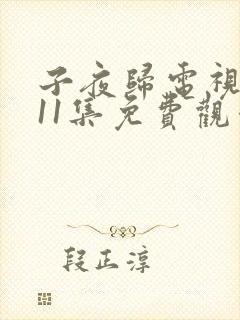 子夜歸電視
11集免費觀
段正淳